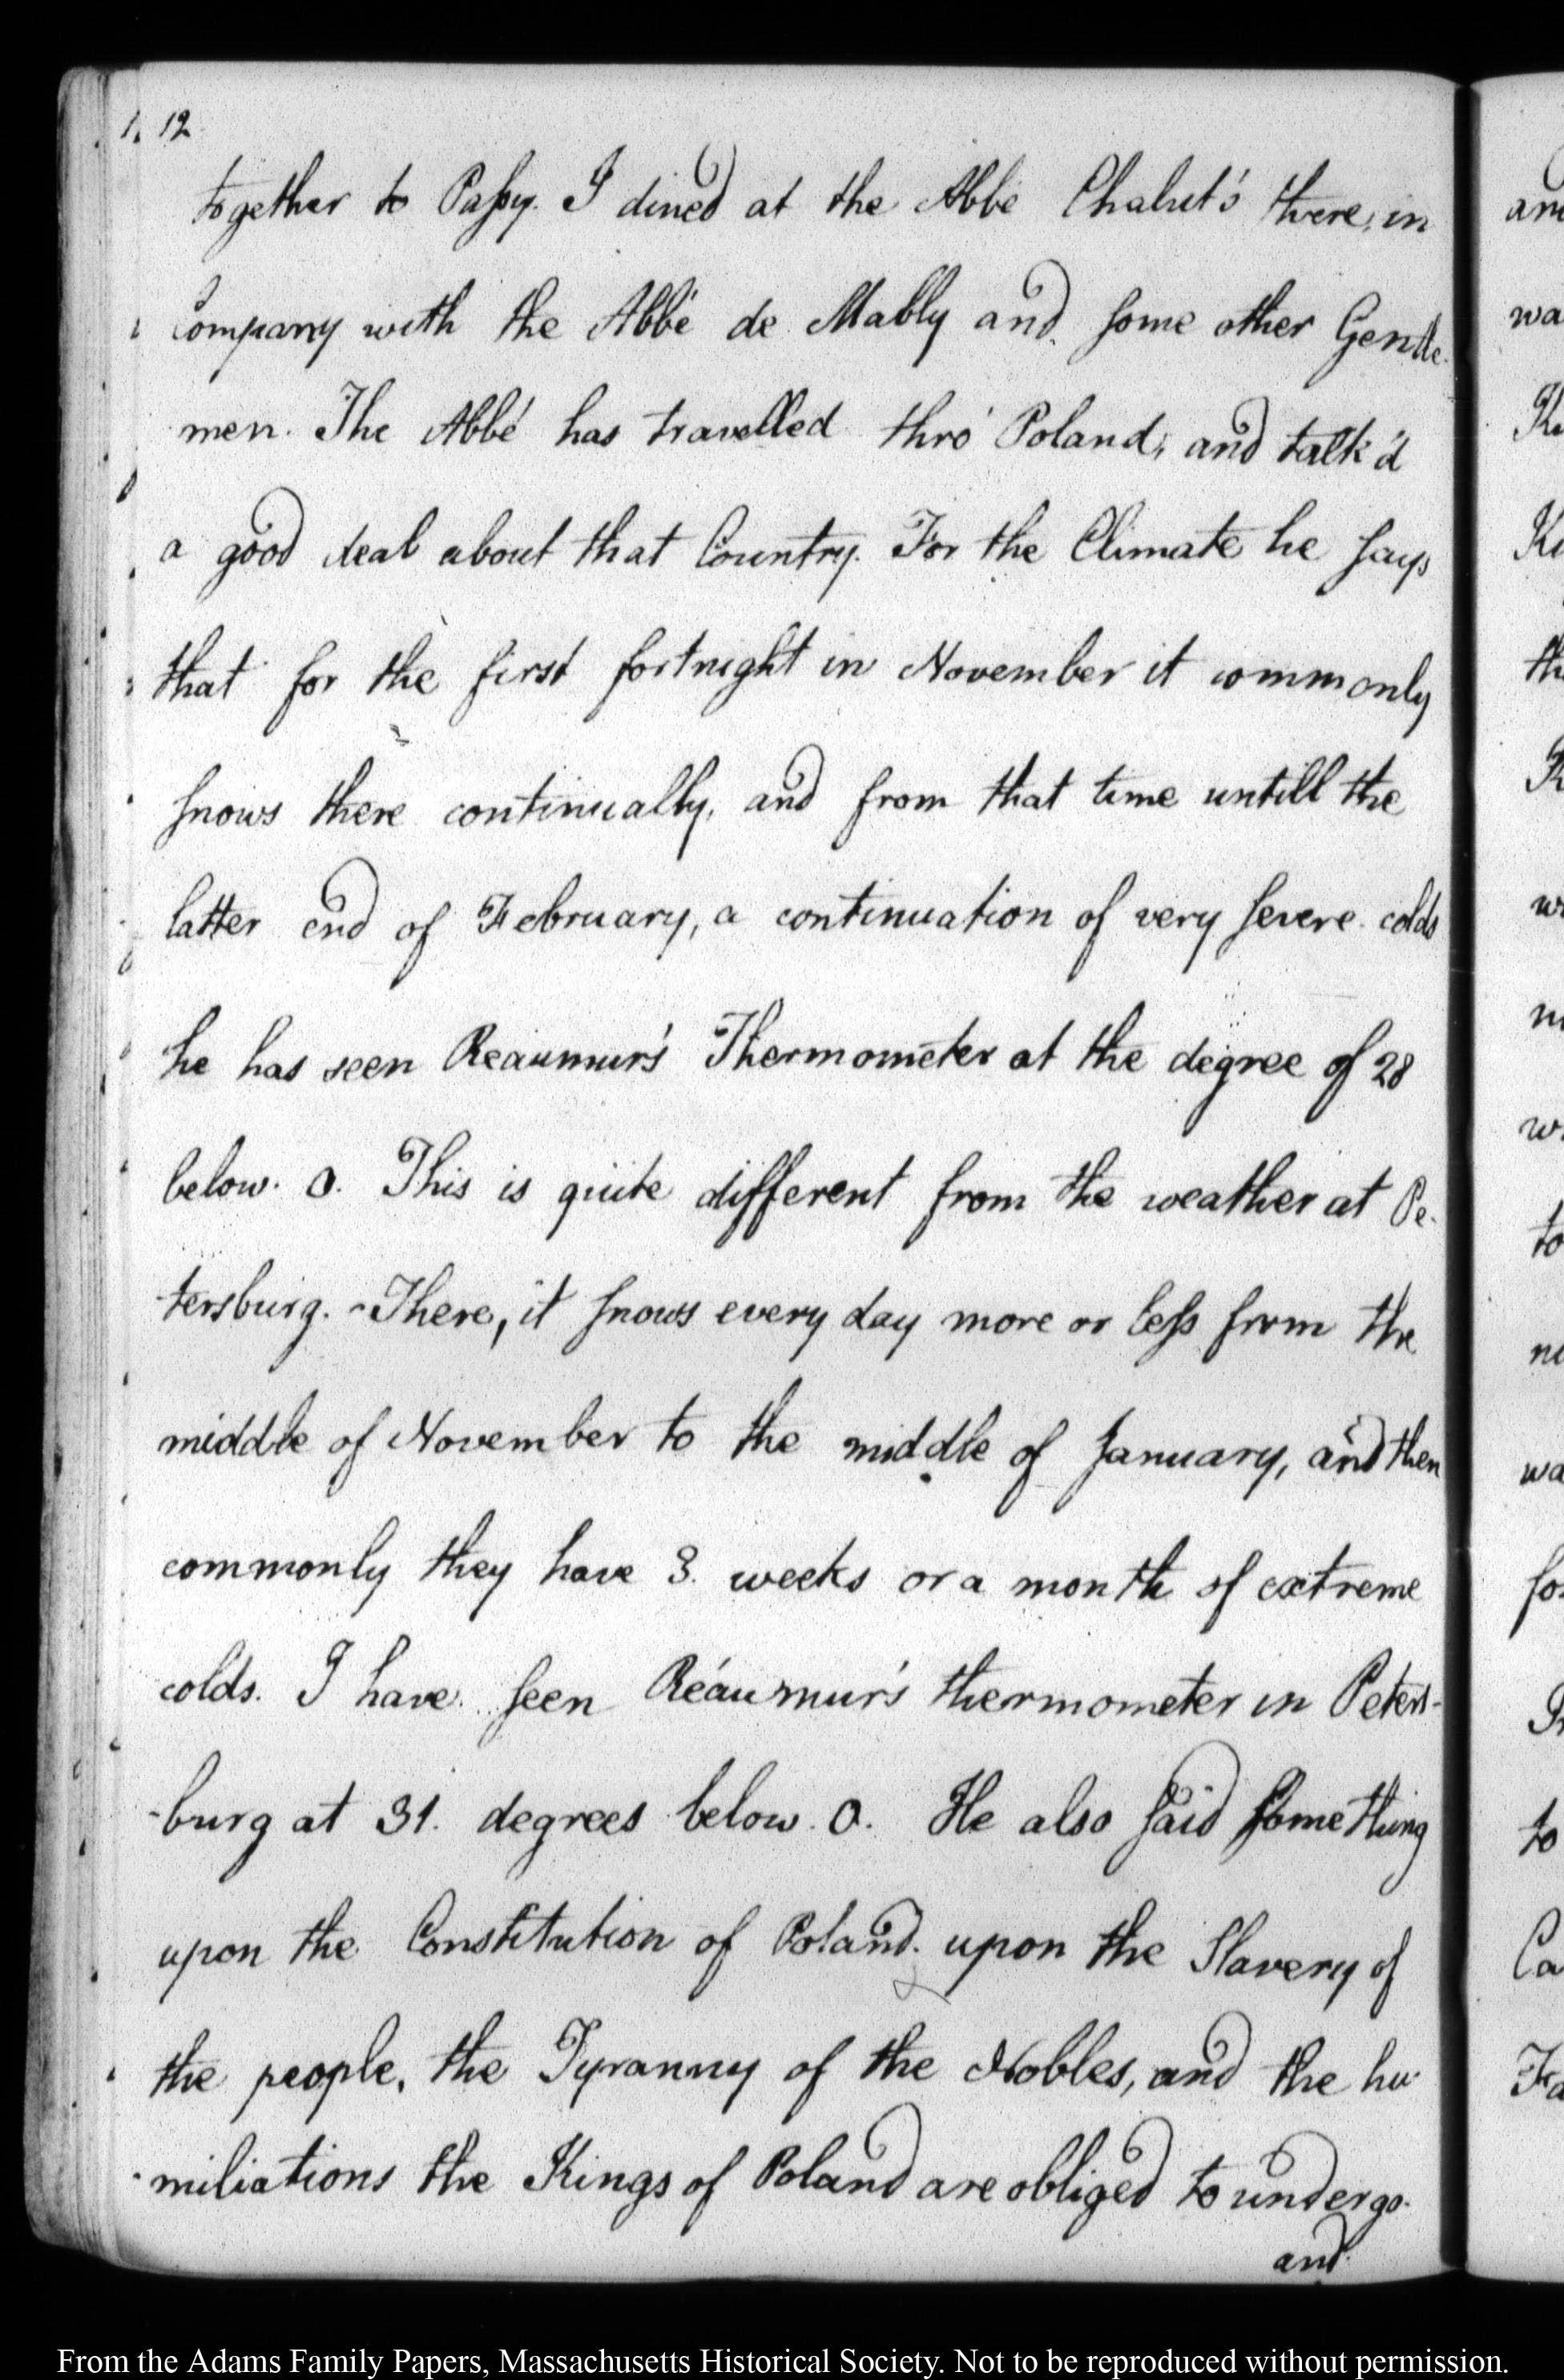 12
together to Passy. I dined at the Abbé Chalut's there, in
Company with the Abbé de Mably and some other Gentle-
men. The Abbé has travelled thro' Poland, and talk'd
a good deal about that Country. For the Climate he says
that for the first fortnight in November it commonly
snows there continually, and from that time untill the
latter end of February, a continuation of very severe colds
he has seen Reaumur's Thermometer at the degree of 28
below. 0. This is quite different from the weather at Pe-
tersburg. There, it snows every day more or less from the
middle of November to the middle of January, and then
commonly they have 3. weeks or a month of extreme
colds. I have seen Réaumur's thermometer in Peters-
-burg at 31. degrees below. 0. He also said something
upon the Constitution of Poland. upon the Slavery of
the people, the Tyranny of the Nobles, and the hu-
-miliations the Kings of Poland are obliged to undergo.
and
an
wa
Ki
th
w
to
wa
fo
to
Ca
Fa
From the Adams Family Papers, Massachusetts Historical Society. Not to be reproduced without permission.